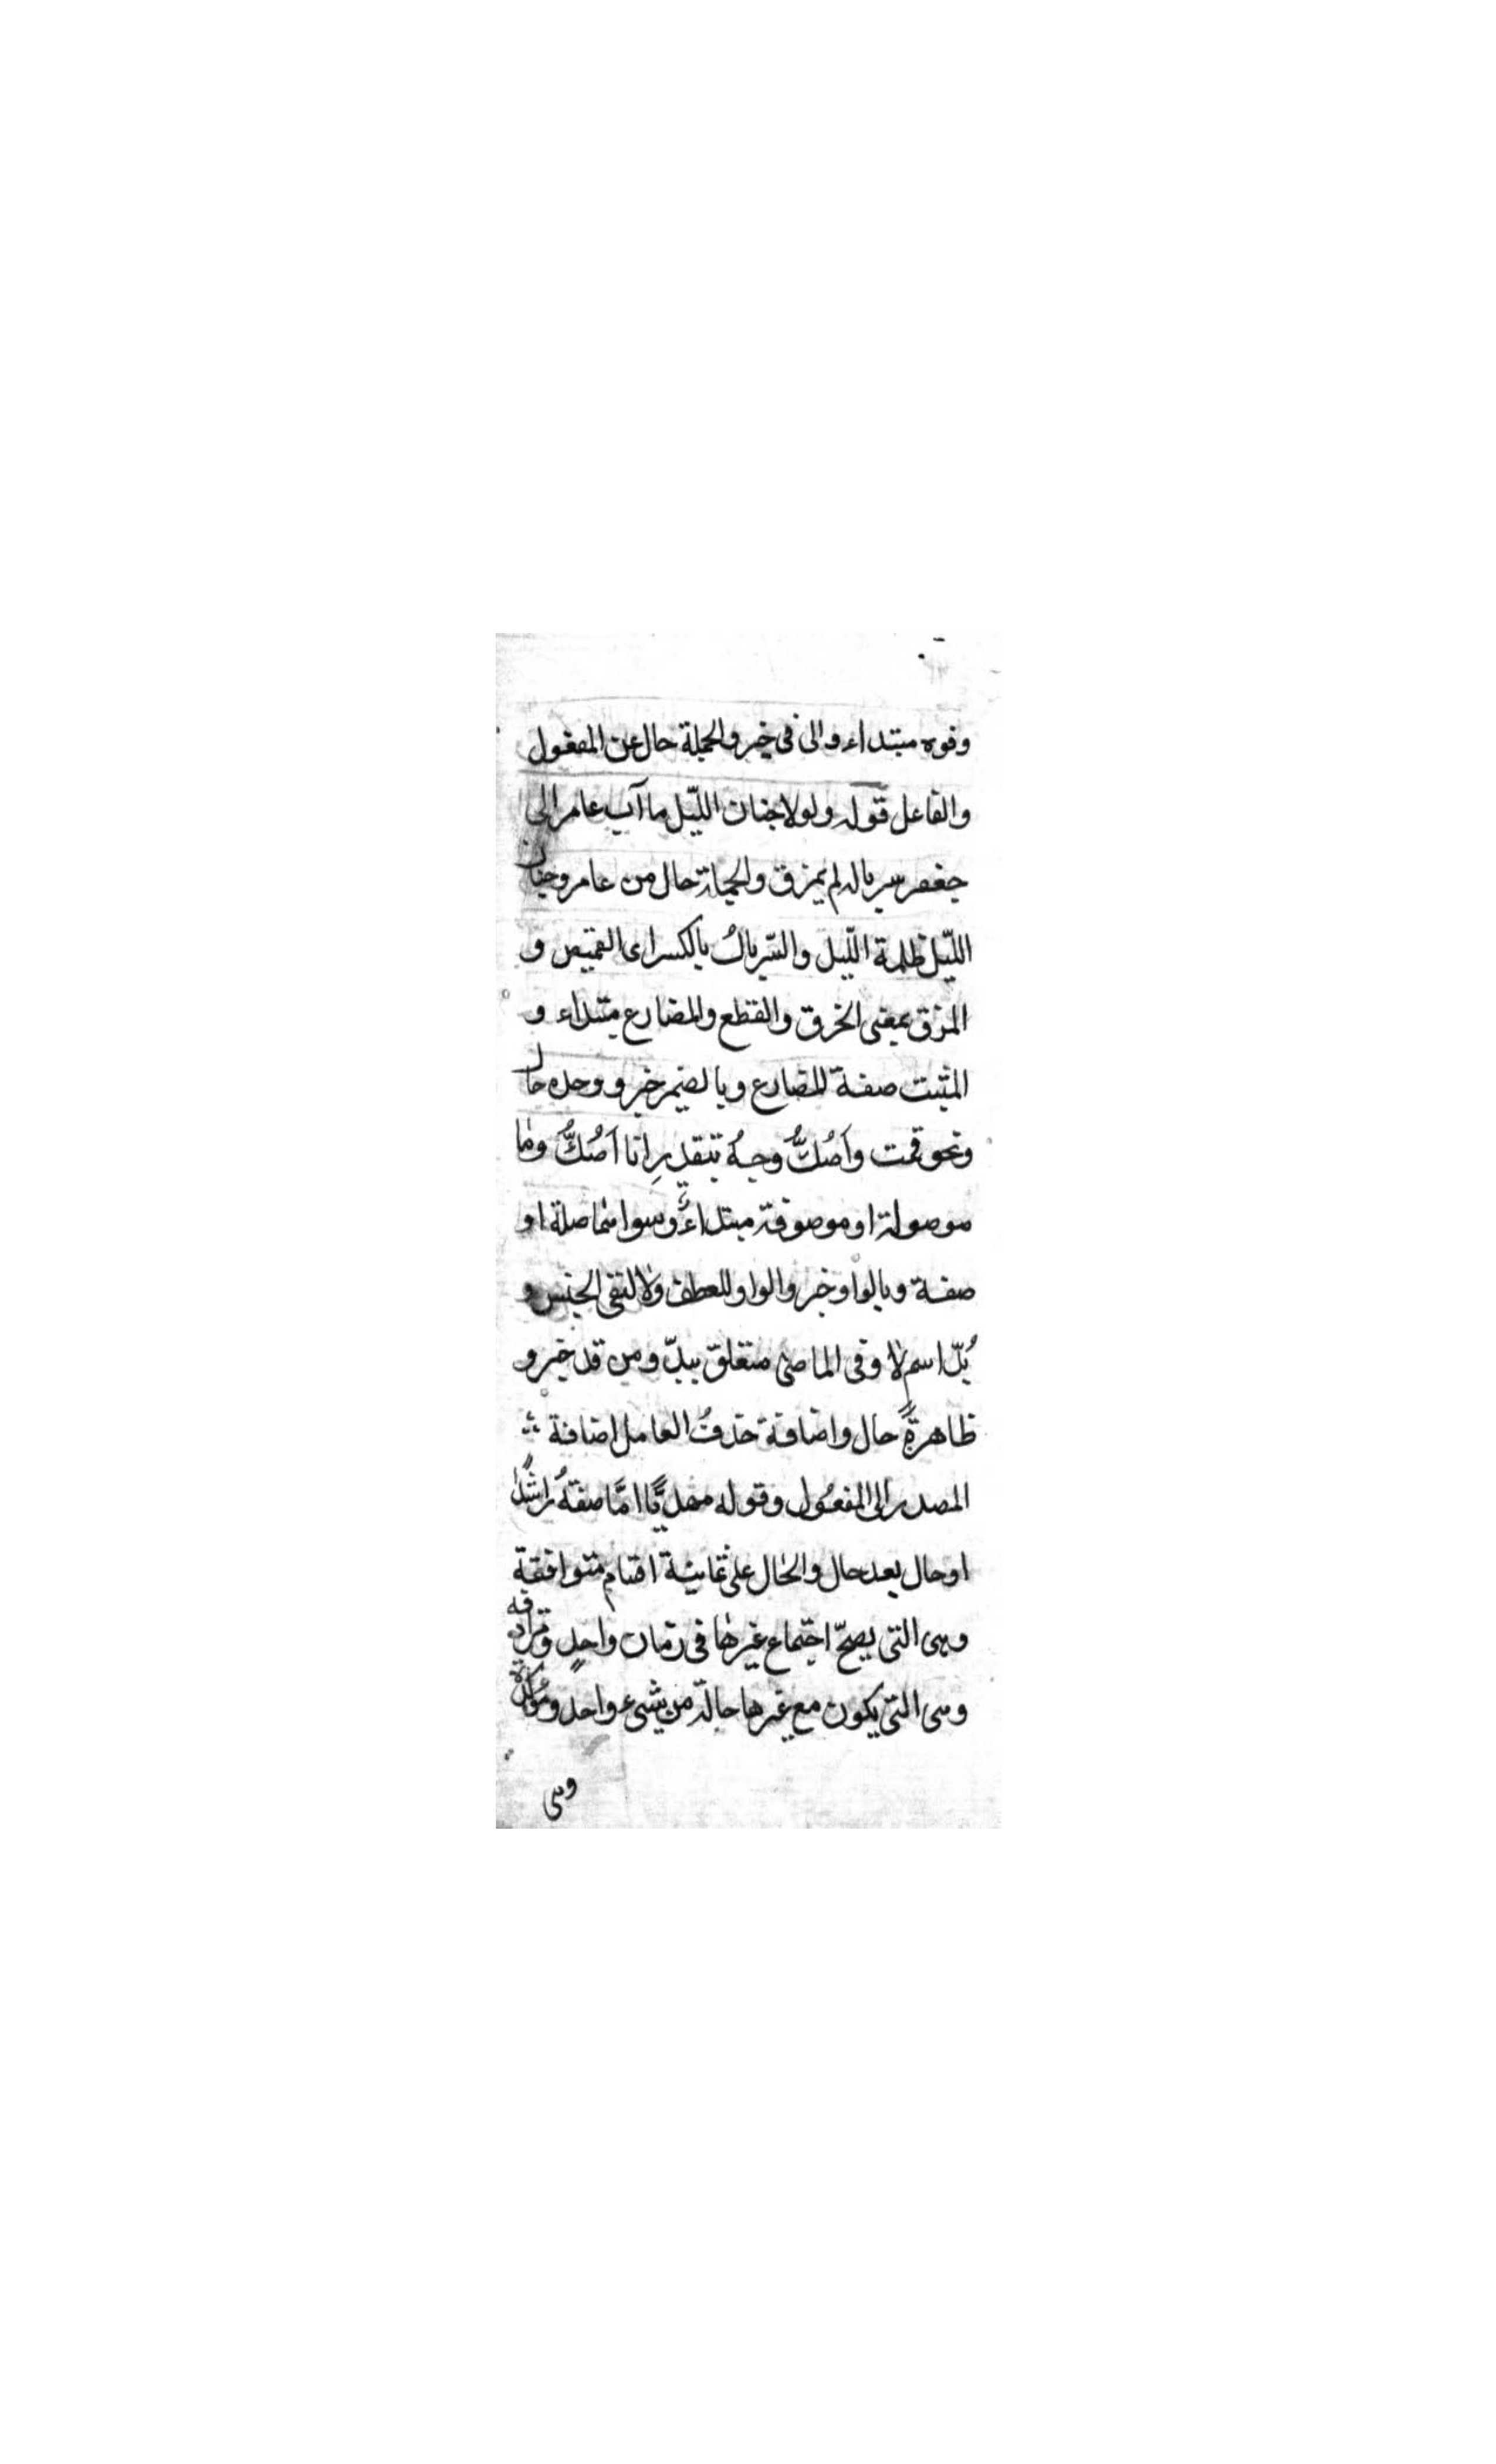 وفوه مبتداء والى فى خبر والجملة حال عن المفعول
والفاعل قوله ولولا جنان الليّل ما آب عامر الى
جعفر سرباله لم يمزق والجملة حال من عامر وجنان
الليّل ظلمة اللّيل والسّربالُ بالكسر اى القميص و
المزق بمعنى الخرق والقطع والمضارع مبتداء و
المثبت صفة للمضارع وبالضمير خبر ووحده حال
ونحو قمت وَاَصُكُّ وجهُه بتقديرِ انا اَصُكُّ وما
موصولة او موصوفة مبتداءٌ وسواهما صلة او
صفة وبالواو خبر والواو للعطف ولا لنفى الجنس و
بُدّ اسم لا وفى الماضى متعلق ببدّ ومن قد خبر و
ظاهرةً حال واضافة حذفُ العامل اضافة
المصدر الى المفعُول وقوله مهديًّا امَّا صفةُ راشدًا
او حال بعد حال والحال على ثمانية اقسام متوافقة
وهى التى يصحّ اجتماع غيرها فى زمان واحدٍ ومترادفه
وهى التى يكون مع غيرها حالة من شىء واحد ومؤكدة
وهى